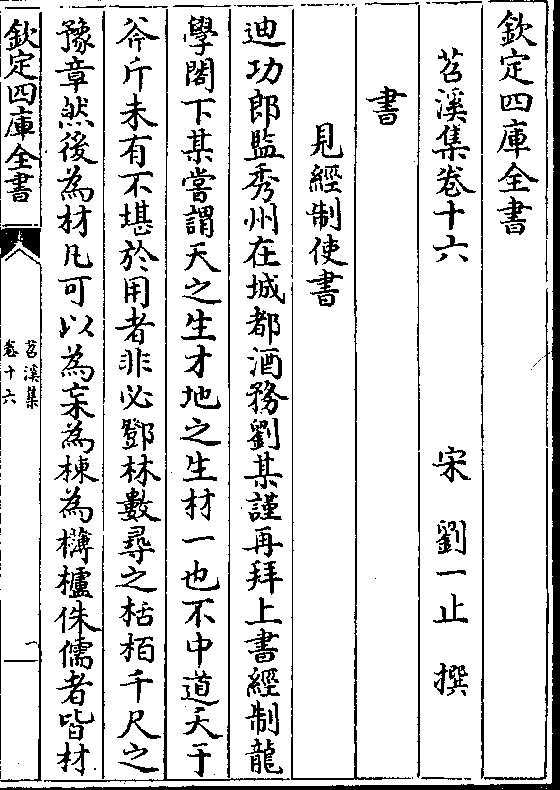 欽定四庫全書
苕溪集卷十六
宋 劉一止 撰
書
見經制使書
迪功郎監秀州在城都酒務劉某謹再拜上書經制龍
學閣下某嘗謂天之生才地之生材一也不中道夭于
斧斤未有不堪於用者非必鄧林數尋之栝栢千尺之
豫章然後為材凡可以為杗為棟為欂櫨侏儒者皆材
欽定四庫全書
苕溪集
卷十六
一